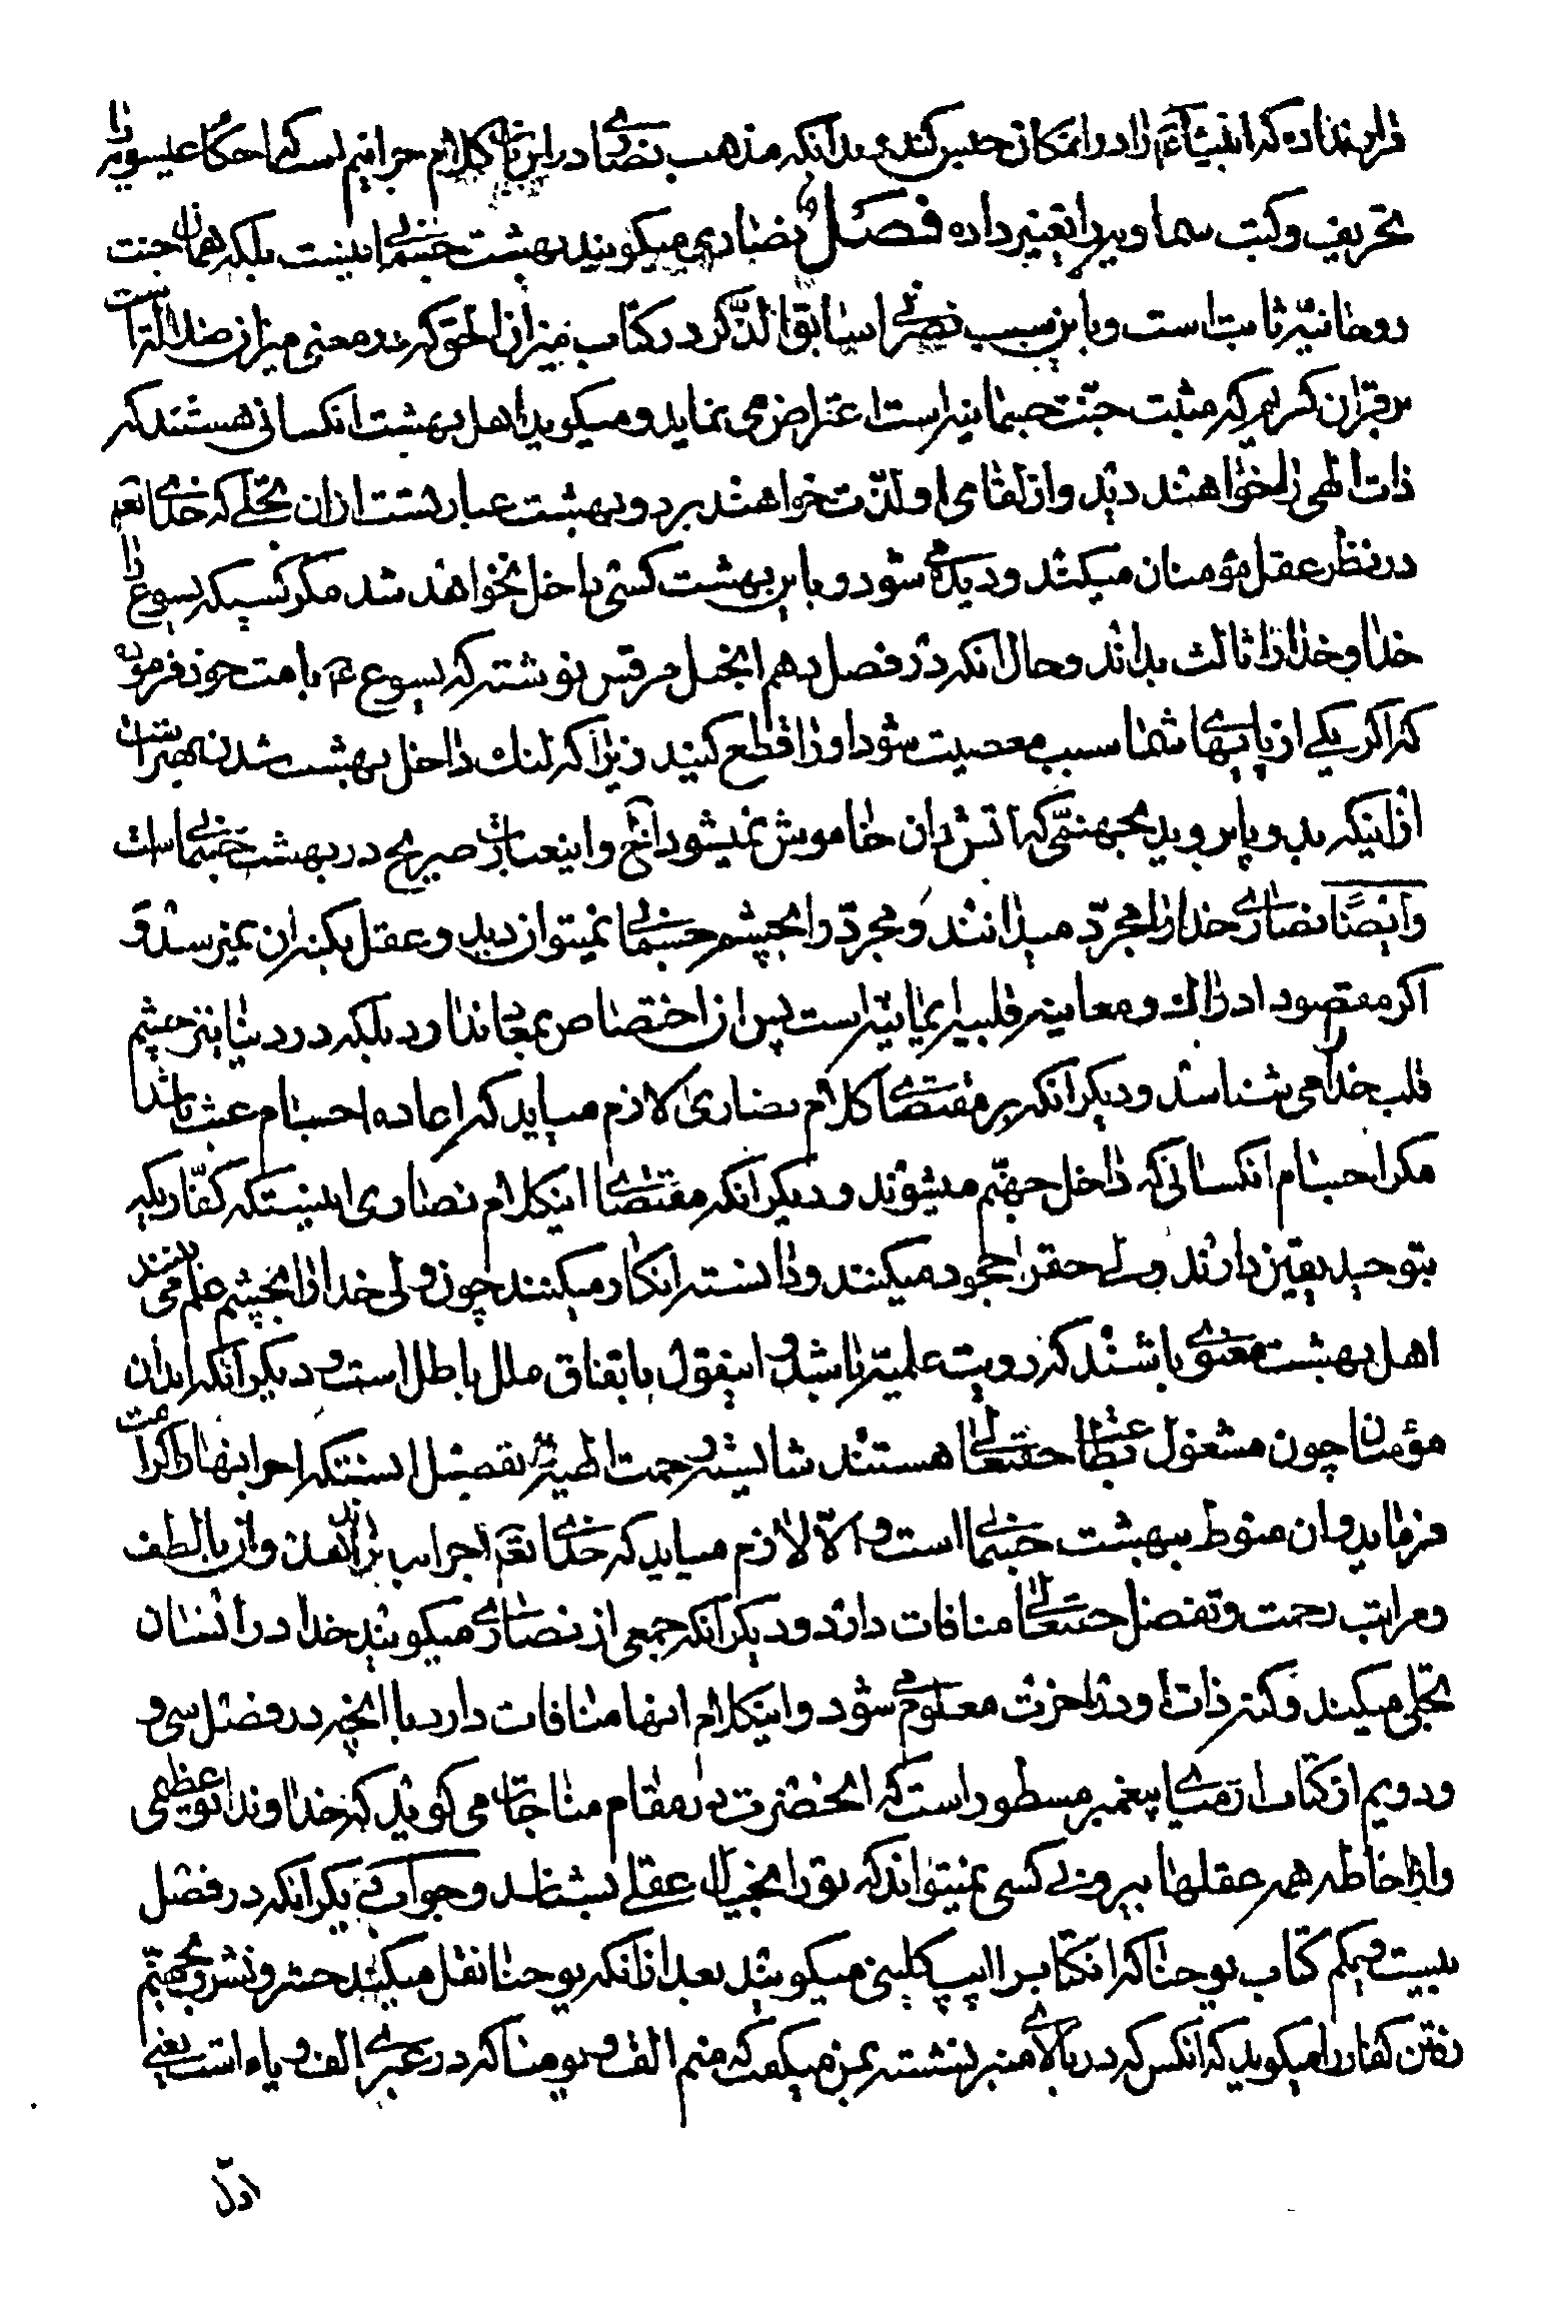 قرار نداده که انبیاء را در آنمکان حبس کنند بدانکه مذهب نصاری در این باب کلام جرانیم است که احکام عیسویه را
تحریف و کتب سماویه را تغییر داده فصل نصاری میکویند بهشت جسمانی نیست بلکه همان جنت
روحانیه ثابت است و باین سبب نصرانی سابق الذکر در کتاب میزان الحق که در معنی میزان ضلالت است
بر قران کریم که مثبت جنت جسمانیه است اعتراض می نماید و میکوید اهل بهشت انکسانی هستند که
ذات الهی را خواهند دید و از لقای او لذت خواهند برد و بهشت عبارتست از ان تجلی که خدای تعه
در نظر عقل مؤمنان میکند و دیده می شود و باین بهشت کسی داخل نخواهد شد مکر کسیکه یسوع را
خدا و خدا را ثالث بداند و حال آنکه در فصل دهم انجیل مرقس نوشته که یسوع ع بامت خود فرموده
که اکر یکی از پایهای شما سبب معصیت شود او را قطع کنید زیرا که لنک داخل بهشت شدن بهتر است
از اینکه بدو پا بروید بجهنمی که آتش دان خاموش نمیشود الخ و اینعبارت صریح در بهشت جسمانی است
و ایضا نصاری خدا را مجرد میدانند و مجرد را بچشم جسمانی نمیتوان دید و عقل بکنه ان نمیرسد و
اکر مقصود ادراک و معاینه قلبیه ایمانیه است پس ان اختصاص بمعاد ندارد بلکه در دنیا نیز چشم
قلب خدا را می شناسد و دیکر انکه بر مقتضای کلام نصاری لازم میاید که اعاده اجسام عبث باشد
مکر اجسام انکسانی که داخل جهنم میشوند و دیکر انکه مقتضای اینکلام نصاری اینستکه کفاریکه
بتوحید یقین دارند ولی حقرا جحود میکنند و دانسته انکار میکنند چون ولی خدا را بچشم علم می بینند
اهل بهشت معنوی باشند که رویت علمیه باشد و اینقول باتفاق ملل باطل است و دیکر آنکه ابدان
مؤمنان چون مشغول بطاعت حقتعالی هستند شایسته رحمت الهیه و تفضل اینستکه اجر اینها را کرامت
فرماید و ان منوط ببهشت جسمانی است و الا لازم میاید که خدای تعه اجر ابدان را ندهد و این با لطف
و مراتب رحمت و تفضل حقتعالی منافات دارد و دیکر آنکه جمعی از نصاری میکویند خدا در انسان
تجلی میکند و کنه ذات او در اخرت معلوم می شود و اینکلام انها منافات دارد با آنچه در فصل سی و
و دویم از کتاب ارمیای پیغمبر مسطور است که انحضرت در مقام مناجات می کوید که خداوندا تو عظیمی
و از احاطه همه عقلها بیرونی کسی نمیتواند که تو را بخیال عقلی بشناسد و جواب دیکر آنکه در فصل
بیست و یکم کتاب یوحنا که انکتابرا اپپکلپسی میکویند بعد از آنکه یوحنا نقل میکند حشر و نشر و بجهنم
رفتن کفار را میکوید که انکس که در بالای منبر نشسته بمن میکفت که منم الف و یو منا که در عبری الف و یاء است یعنی
اول